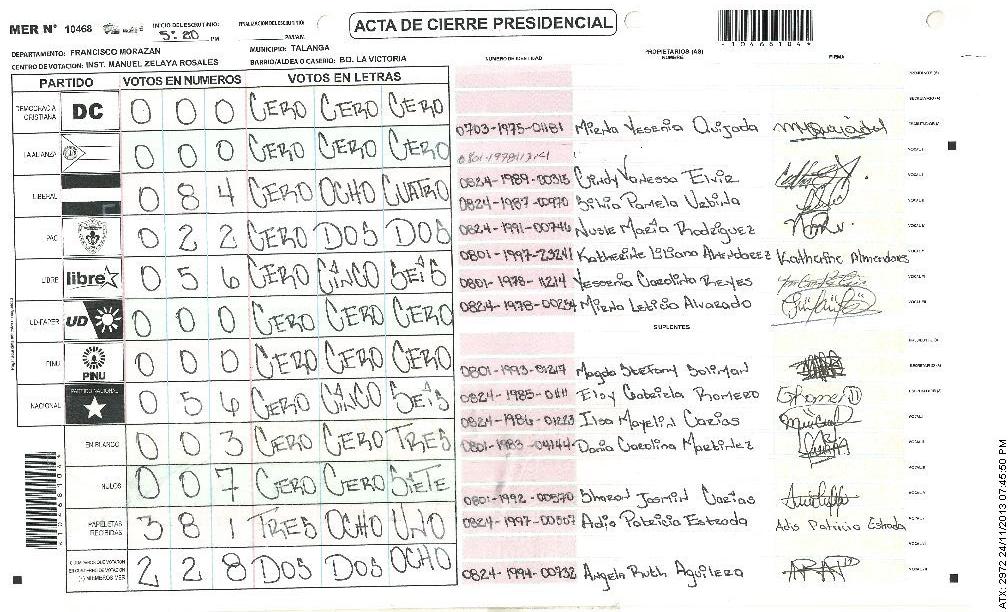 MER Nº 10468
INICIO DEL ESCRUTINIO: 5:20 PM
FINALIZACION DEL ESCRUTINIO: PM/AM.
ACTA DE CIERRE PRESIDENCIAL
*10468104*
DEPARTAMENTO: FRANCISCO MORAZAN
MUNICIPIO: TALANGA
CENTRO DE VOTACION: INST. MANUEL ZELAYA ROSALES
BARRIO/ALDEA O CASERIO: BO. LA VICTORIA
PARTIDO VOTOS EN NUMEROS VOTOS EN LETRAS
DEMOCRACIA CRISTIANA DC 0 0 0 CERO CERO CERO
LA ALIANZA 0 0 0 CERO CERO CERO
LIBERAL 0 8 4 CERO OCHO CUATRO
PAC 0 2 2 CERO DOS DOS
LIBRE libre 0 5 6 CERO CINCO SEIS
UD-FAPER UD 0 0 0 CERO CERO CERO
PINU PINU 0 0 0 CERO CERO CERO
NACIONAL PARTIDO NACIONAL 0 5 6 CERO CINCO SEIS
EN BLANCO 0 0 3 CERO CERO TRES
NULOS 0 0 7 CERO CERO SIETE
PAPELETAS RECIBIDAS 3 8 1 TRES OCHO UNO
2 2 8 DOS DOS OCHO
NUMERO DE IDENTIDAD PROPIETARIOS (AS) NOMBRE FIRMA
0703-1975-01181 Mirna Yesenia Quijada
0824-1989-00315 Cindy Vanessa Elvir
0824-1987-00970 Silvia Pamela Urbina
0824-1991-00746 Nusle Maria Rodriguez
0801-1997-23241 Katherine Liliana Almendarez Katherine Almendares
0801-1978-11214 Yessenia Carolina Reyes
0824-1978-00234 Mirna Leticia Alvarado
SUPLENTES
0801-1993-01217 Magda Stefany Soliman
0824-1985-01111 Eloy Gabriela Romero
0824-1986-01223 Ilsa Mayelin Carias
0801-1983-04144 Dania Carolina Martinez
0801-1992-00570 Sharon Jasmin Carias
0824-1997-00507 Adis Patricia Estrada Adis Patricia Estrada
0824-1994-00732 Angela Ruth Aguilera
*10468104*
ATX: 2972 24/11/2013 07:45:50 PM